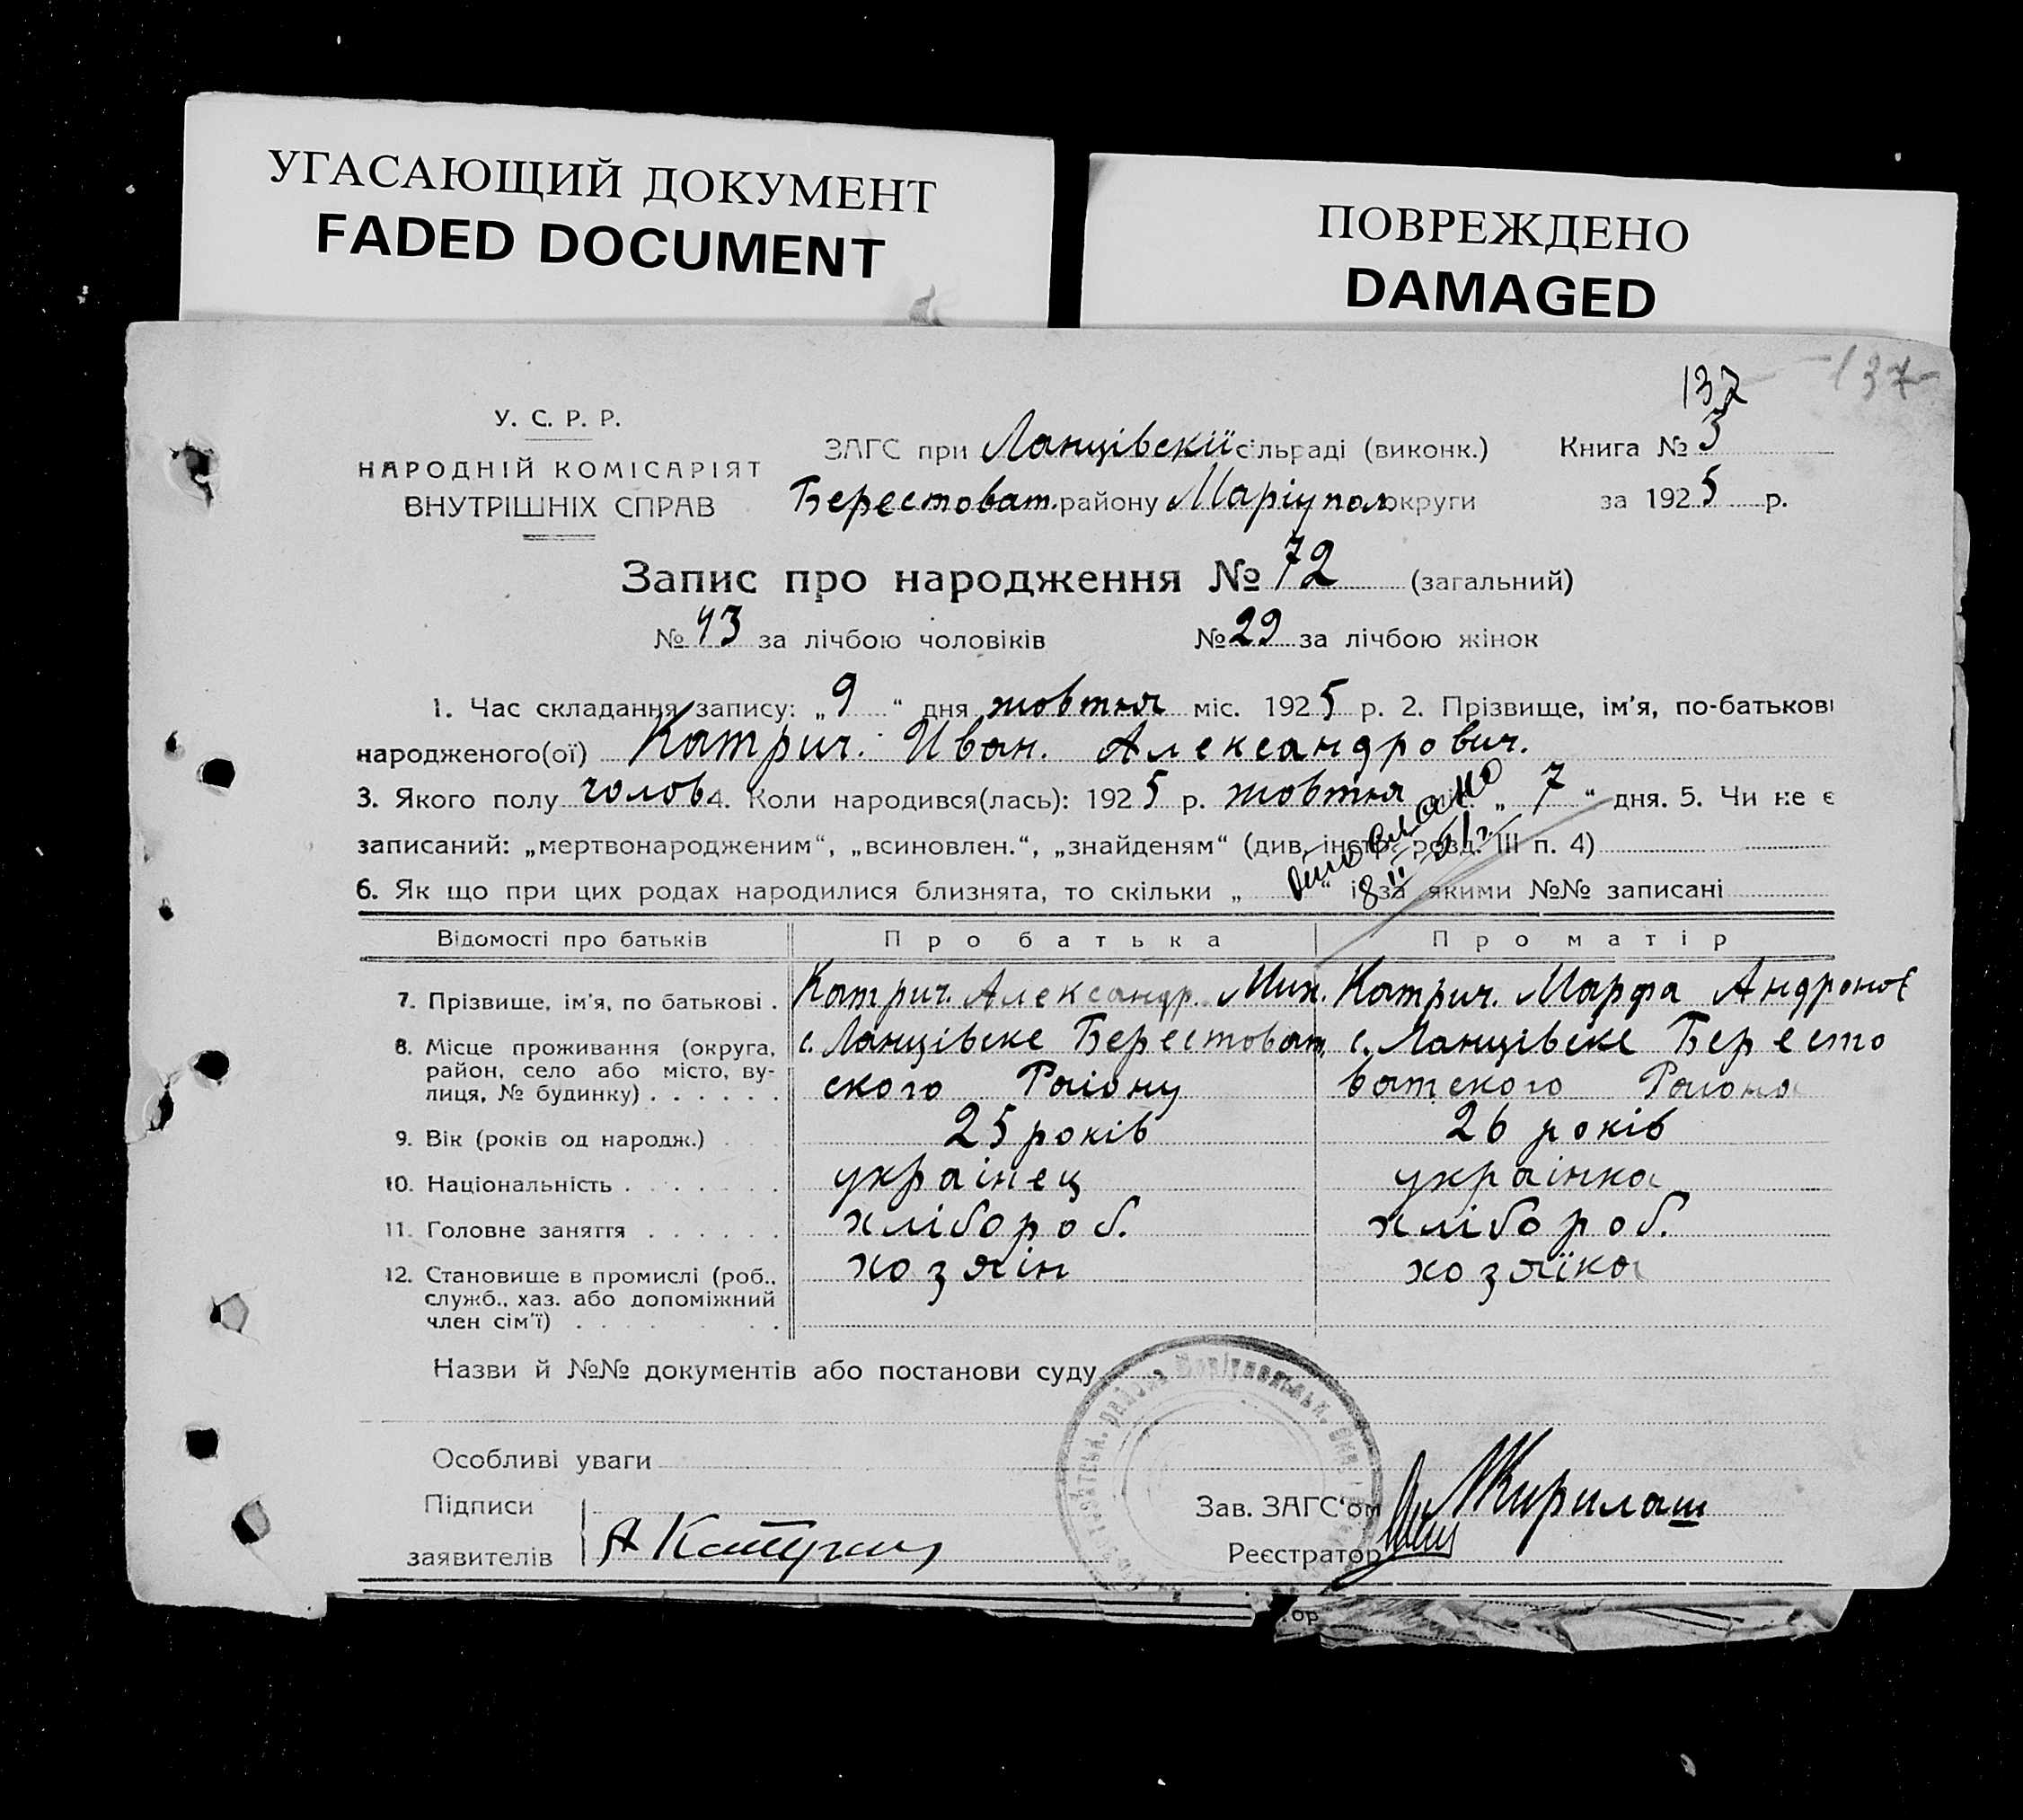 УГАСАЮЩИЙ ДОКУМЕНТ
FADED DOCUMENT
ПОВРЕЖДЕНО
DAMAGED
137
137
У. С. Р. Р.
НАРОДНІЙ КОМІСАРІЯТ
ВНУТРІШНІХ СПРАВ
ЗАГС при Ланцівскій сільраді (виконк.) Книга № 3
Берестоват. району Маріупол округи за 1925 р.
Запис про народження № 72 (загальний)
№ 43 за лічбою чоловіків № 29 за лічбою жінок
1. Час складання запису: „9“ дня жовтня міс. 1925 р. 2. Прізвище, ім'я, по-батькові
народженого(ої) Катрич. Иван. Александрович.
3. Якого полу чолов 4. Коли народився(лась): 1925 р. жовтня „7“ дня. 5. Чи не є
записаний: „мертвонародженим“, „всиновлен.“, „знайденям“ (див. інстр. розд. III п. 4)
6. Як що при цих родах народилися близнята, то скільки „ “ і за якими №№ записані
8 II 51 г.
Відомості про батьків Про батька Про матір
7. Прізвище, ім'я, по батькові . Катрич. Александр. Мих. Катрич. Марфа Андронов
8. Місце проживання (округа, с. Ланцівске Берестоват с. Ланцівске Бересто
район, село або місто, ву-
лиця, № будинку) . . . . . . ского Раіону ватского Раіона
9. Вік (років од народж.) 25 років 26 років
10. Національність . . . . . . . украінец украінка
11. Головне заняття . . . . . . хлібороб. хлібороб.
12. Становище в промислі (роб., хозяін хозяїка
служб., хаз. або допоміжний
член сім'ї) . . . . . . .
Назви й №№ документів або постанови суду
Особливі уваги
Підписи
заявителів А Катрич
Зав. ЗАГС'ом Кирилаш
Реєстратор